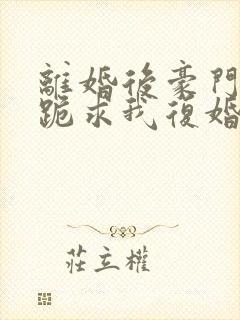 離婚後豪門
跪求我復婚
莊立權